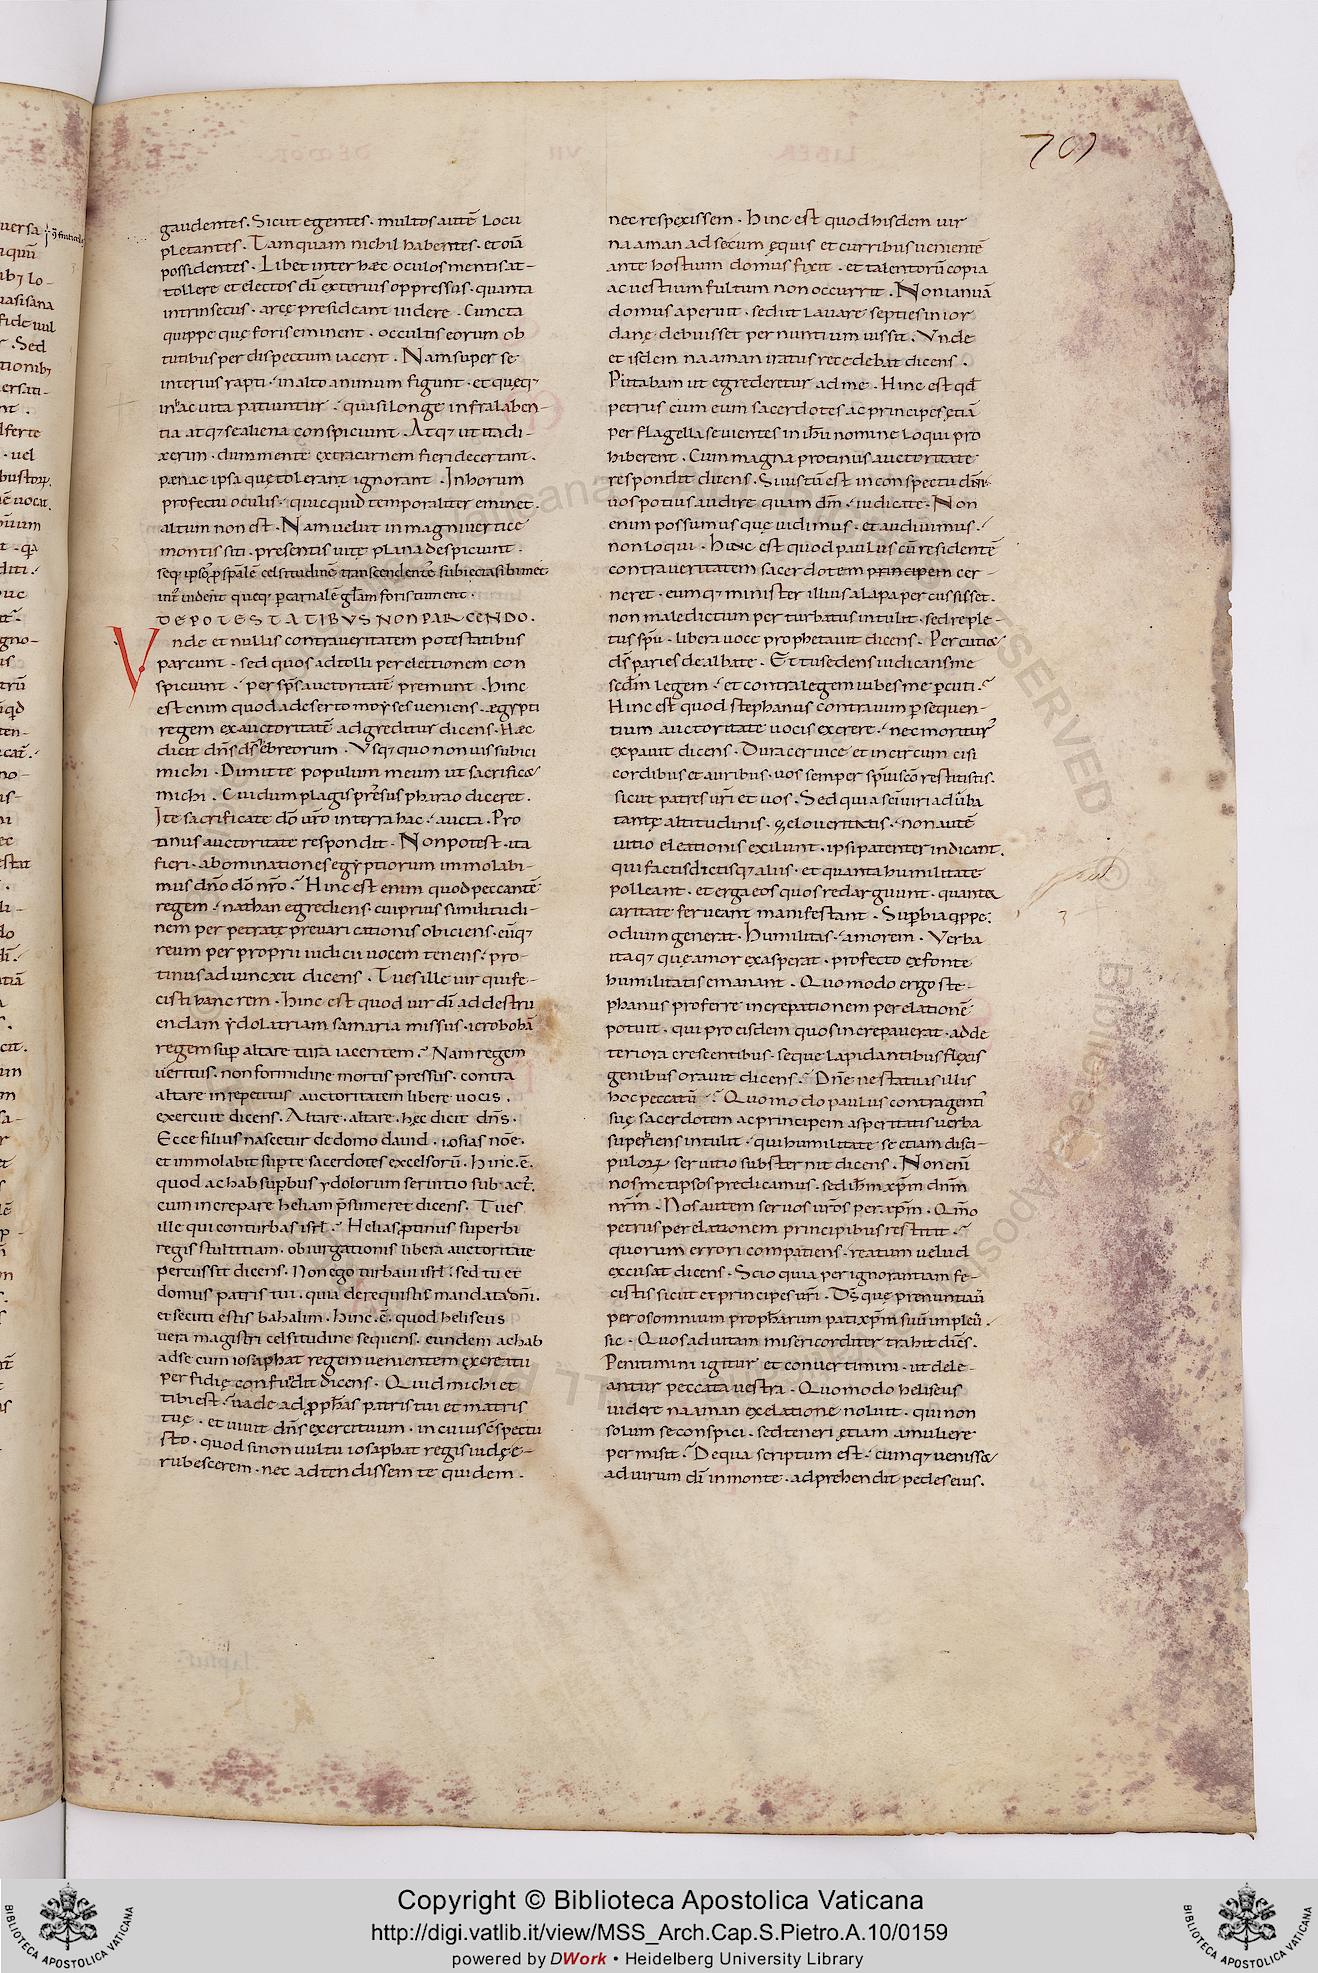 701
gaudentes. Sicut egentes. multos autē Locu
pletantes. Tamquam nichil habentes. et oīa
possidentes. Libet inter hæc oculos mentis at-
tollere et electos dī exterius oppressus. quanta
intrinsecus. arcę presideant uidere. Cuncta
quippe quę foris eminent. occultis eorum ob
tutibus per dispectum iacent. Nam super se
interius rapti. in alto animum figunt. et quęq;
in hac uita patiuntur. quasi longe infra laben-
tia atq; se aliena conspiciunt. Atq; ut ita di-
xerim. dum mente extra carnem fieri decertant.
pæna ipsa quę tolerant ignorant. In horum
profectu oculis. quicquid temporaliter eminet.
altum non est. Nam uelut in magni uertice
montis siti. presentis uitę plana despiciunt.
DE POTESTATIBVS NON PARCENDO.
Vnde et nullis contra ueritatem potestatibus
parcunt. sed quos adtolli per elettionem con
spiciunt. per sp̄s auctoritatē premunt. Hinc
est enim quod a deserto moẏses ueniens. ægypti
regem ex auctoritatē adgreditur dicens. Hæc
dicit dn̄s d̄s ebreorum. Vsq; quo non uis subici
michi. Dimitte populum meum ut sacrificæ
michi. Cui dum plagis pressus pharao diceret.
Ite sacrificate dō ur̄o in terra hac. aucta. Pro
tinus auctoritate respondit. Non potest ita
fieri. abominationes egẏptiorum immolabi-
mus dn̄o dō nr̄o. Hinc est enim quod peccantē
regem. nathan egrediens. cui prius similitudi-
nem perpetratę preuaricationis obiciens. eūq;
reum per proprii iudicii uocem tenens. pro-
tinus adiuncxit dicens. Tu es ille uir qui fe-
cisti hanc rem. Hinc est quod uir dī ad destru
endam ẏdolatriam samaria missus. ierobohā
regem sup altare tura iacentem. Nam regem
ueritus. non formidine mortis pressus. contra
altare inrepertius auctoritatem libere uocis.
exercuit dicens. Altare. altare. hęc dicit dn̄s.
Ecce filius nascetur de domo dauid. iosias nōe.
et immolabit super te sacerdotes excelsorū. Hinc. ē.
quod achab supbus ẏdolorum seruitio sub act.
cum increpare heliam p̄sumeret dicens. Tu es
ille qui conturbas isrl. Helias protinus superbi
regis stultitiam. obiurgationis libera auctoritate
percussit dicens. Non ego turbaui isrl. sed tu et
domus patris tui. quia derequistis mandata dn̄i.
et secuti estis bahalim. Hinc. ē. quod heliseus
uera magistri celsitudine sequens. eundem achab
ad se cum iosaphat regem uenientem ex reatu
per fidię confudit dicens. Quid michi et
tibi est. uade ad prophetas patris tui et matris
tuę. et uiuit dn̄s exercituum. in cuius c̄spectu
sto. quod si non uultu iosaphat regis iudęę e-
rubescerem. nec adtendissem te quidem.
nec respexissem. Hinc est quod hisdem uir
naaman ad se cum equis et curribus uenientē
ante hostium domus fixit. et talentorū copia
ac uestium fultum non occurrit. Non ianuā
domus aperuit. sed ut lauare septies in ior
dane debuisset per nuntium iussit. Vnde
et isdem naaman iratus recedebat dicens.
Putabam ut egrederetur ad me. Hinc est qd̄
petrus cum eum sacerdotes ac principes ętiā
per flagella seuientes in ih̄u nomine loqui pro
hiberent. Cum magna protinus auctoritate
respondit dicens. Si iustū est in conspectu dn̄i
uos potius audire quam dm̄. iudicate. Non
enim possumus quę uidimus. et audiuimus.
non loqui. Hinc est quod paulus cū residentē
contra ueritatem sacerdotem principem cer-
neret. eumq; minister illius alapa percussisset.
non maledictum perturbatus intulit. sed reple-
tus sp̄u. libera uoce prophetauit dicens. Percutiæ
d̄s paries dealbate. Et tu sedens iudicans me
scd̄m legem. et contra legem iubes me p̄cuti.
Hinc est quod stephanus contra uim p̄sequen-
tium auctoritate uocis exerere. nec moritur
expauit dicens. Dura ceruice et incircumcisi
cordibus et auribus. uos semper sp̄ui sc̄o restitistis.
sicut patres ur̄i et uos. Sed quia sc̄i uiri ad ūba
tantę altitudinis. zelo ueritatis. non autē
uitio eleationis exiliunt. ipsi patenter indicant.
qui factis dictisq; aliis. et quanta humilitate
polleant. et erga eos quos redarguunt. quanta
caritate ferueant manifestant. Supbia qppe.
odium generat. Humilitas. amorem. Verba
itaq; quę amor exasperat. profecto ex fonte
humilitatis emanant. Quomodo ergo ste-
phanus proferre increpationem per elationē
potuit. qui pro eisdem quos increpauerat. ad de
teriora crescentibus. seque lapidantibus flexis
genibus orauit dicens. Dn̄e ne statuas illis
hoc peccatū. Quomodo paulus contra genti
suę sacerdotem ac principem asperitatis uerba
superbiens intulit. qui humilitate se etiam disci-
pulorum seruitio substernit dicens. Non enī
nosmetipsos predicamus. sed ih̄m xp̄m dn̄m
nr̄m. Nos autem seruos ur̄os per. xp̄m. Quō
petrus per elationem principibus restitit.
quorum errori compatiens. reatum uelud
excusat dicens. Scio quia per ignorantiam fe-
cistis sicut et principes ur̄i. D̄s quę prenuntiauit
per os omnium propharum pati xp̄m suū impleū.
sic. Quos ad uitam misericorditer trahit dicēs.
Penitimini igitur et conuertimini. ut dele-
antur peccata uestra. Quomodo heliseus
uidere naaman ex elatione noluit. qui non
solum se conspici. sed teneri ętiam a muliere
permisit. De qua scriptum est. cumq; uenissæ
ad uirum dī in monte. adprehendit pedes eius.
Copyright © Biblioteca Apostolica Vaticana
http://digi.vatlib.it/view/MSS_Arch.Cap.S.Pietro.A.10/0159
powered by DWork • Heidelberg University Library
BIBLIOTECA APOSTOLICA VATICANA
BIBLIOTECA APOSTOLICA VATICANA